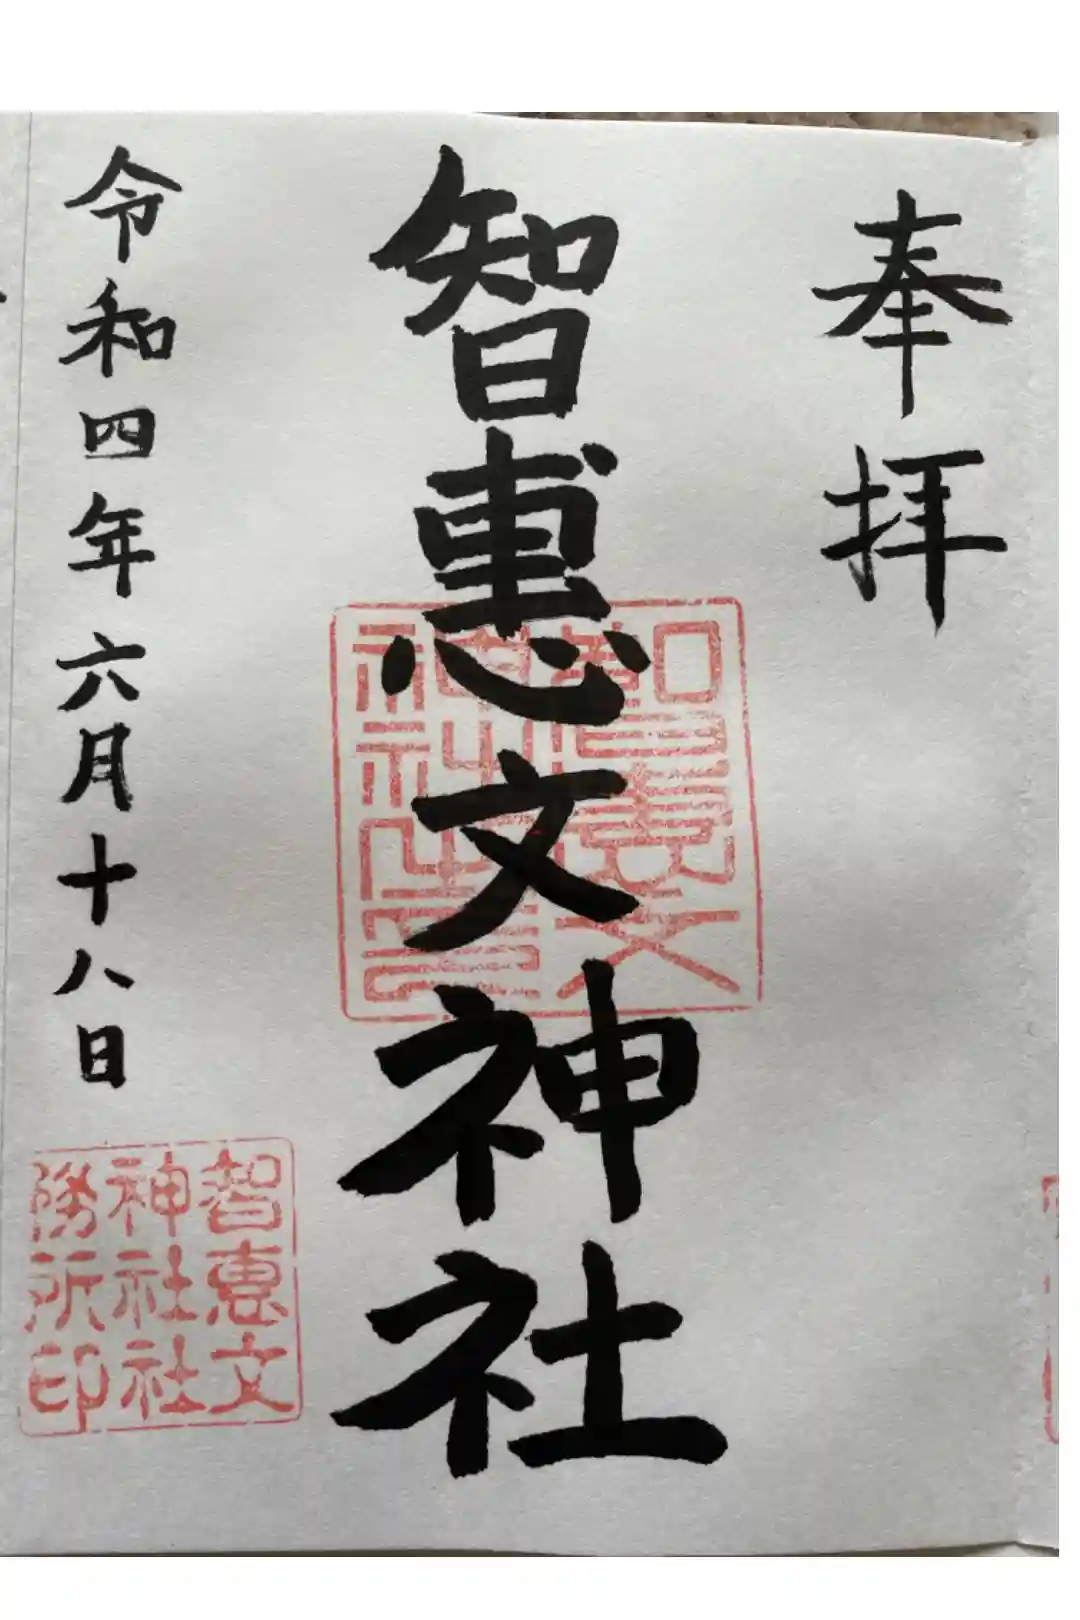 奉拝
智惠文神社
智惠文
神社之印
令和四年六月十八日
智惠文
神社社
務所印